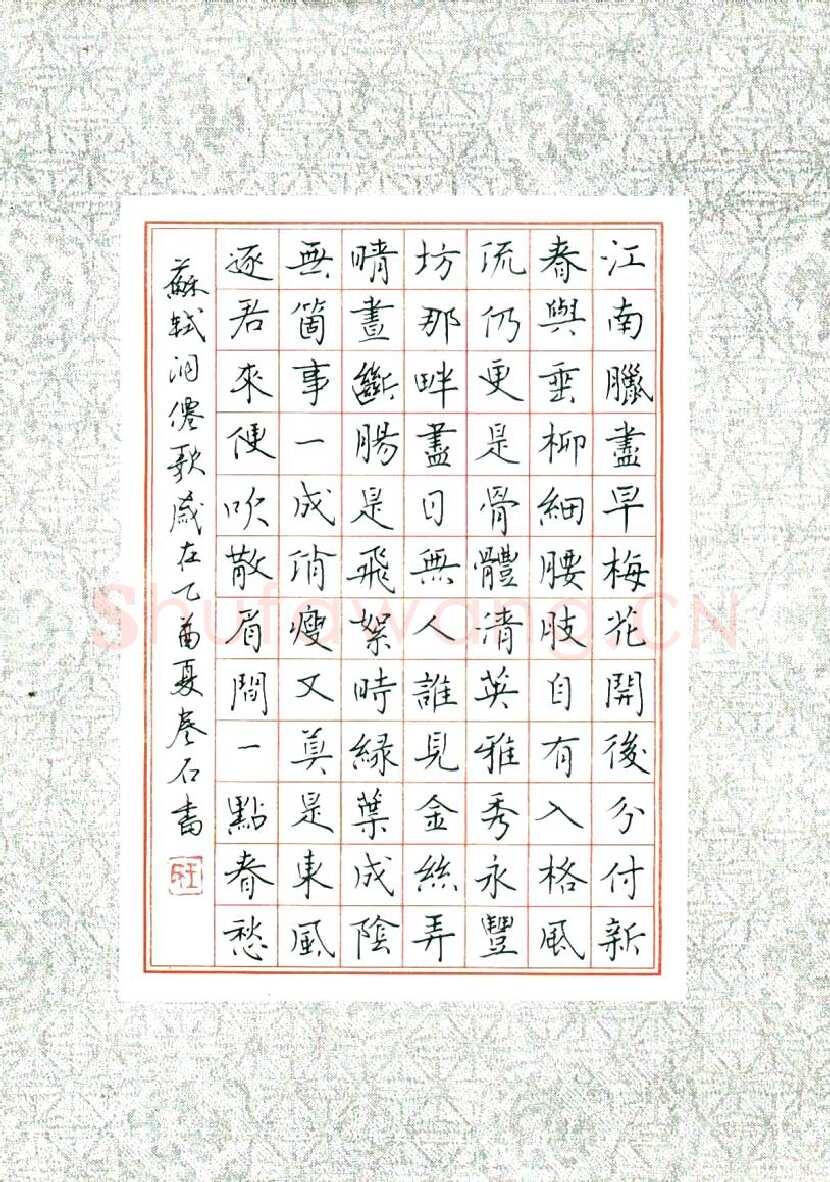 江南臘盡早梅花開後分付新
春與垂柳細腰肢自有入格風
流仍更是骨體清英雅秀永豐
坊那畔盡日無人誰見金絲弄
晴晝斷腸是飛絮時緑葉成陰
無箇事一成消瘦又莫是東風
逐君來便吹散眉間一點春愁
蘇軾洞僊歌歲在乙酉夏卷石書
Shufawang.CN